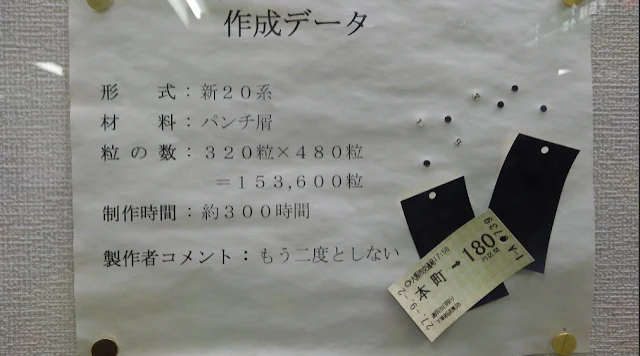 作成データ
形　式：新２０系
材　料：パンチ屑
粒の数：３２０粒×４８０粒
＝１５３,６００粒
制作時間：約３００時間
製作者コメント：もう二度としない
本町→180
円区間
27.-9.-2